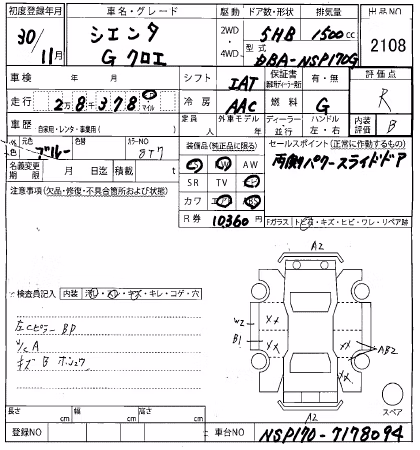 初度登録年月
車名・グレード
駆動 ドア数・形状 排気量
出品NO
30/11月
シエンタ
G クロエ
2WD・4WD
5HB
1500cc
2108
型式
DBA-NSP170G
車検 年 月
シフト
IAT
保証書
有・無
評価点
走行 2万8千378 マイル
冷房
AAC
燃料
G
R
車歴
(自家用・レンタ・事業用)
定員
人
外車モデル
年
ディーラー
並行
ハンドル
左・右
内装評価
B
元色
色
ブルー
色替
カラーNO
8T7
装備品(純正品に限る)
セールスポイント(正常に作動するもの)
両側パワースライドドア
名義変更期限
月 日迄
積載
t
SR TV
AW
カワ
R券
10360円
注意事項(欠品・修復・不具合箇所および状態)
Fガラス
トビ石・キズ・ヒビ・ワレ・リペア跡
検査員記入
内装
キレ・コゲ・穴
左Cピラー BP
W/C A
キズ B ホシュウ
A2
W2
B1
XX
XX
XX
XX
AB2
A2
スペア
長さ cm
幅 cm
高さ cm
登録NO
車台NO
NSP170-7178094